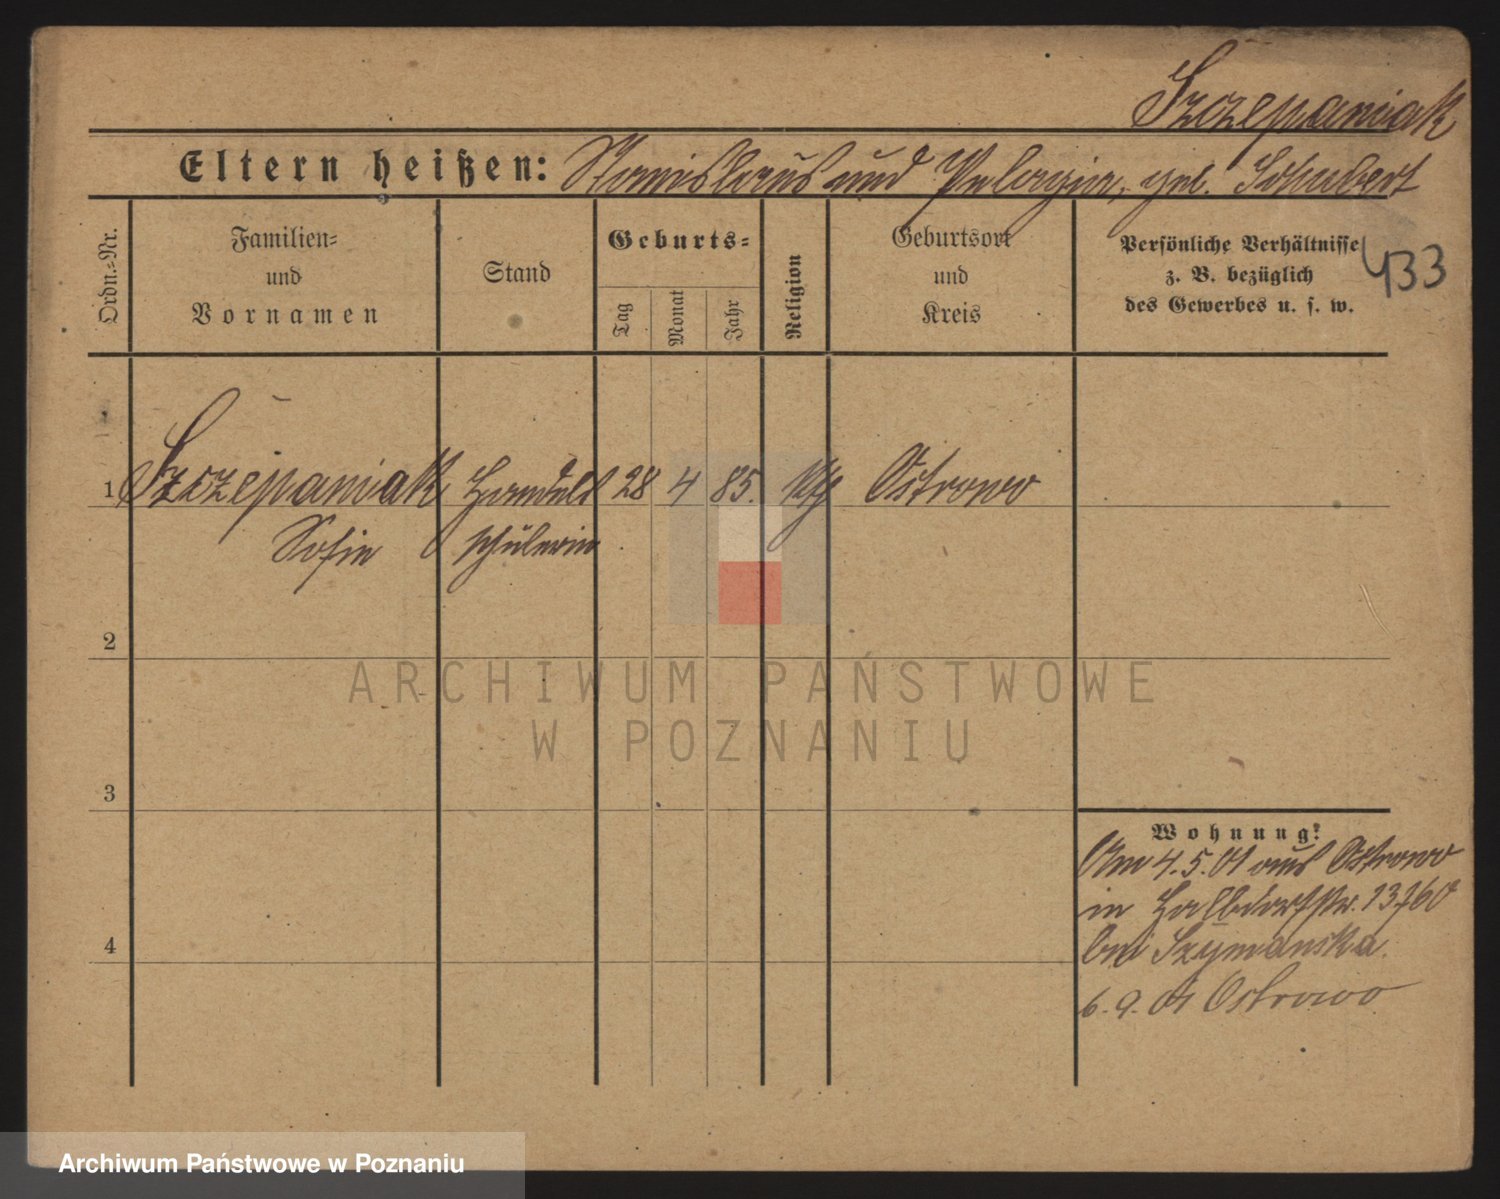 Szczepaniak
Eltern heißen: Stanislaus und Pelagia, geb. Schubert
Ordn.=Nr.
Familien=
und
Vornamen
Stand
Geburts=
Tag
Monat
Jahr
Religion
Geburtsort
und
Kreis
Persönliche Verhältnisse
z. B. bezüglich
des Gewerbes u. s. w.
433
1 Szczepaniak Handels 28 4 85. kth Ostrowo
Sofie schülerin
2
3
4
Wohnung:
Am 4.5.01 aus Ostrowo
in Halbdorfstr.
bei Szymanska.
6.9.01 Ostrowo
ARCHIWUM PAŃSTWOWE
W POZNANIU
Archiwum Państwowe w Poznaniu